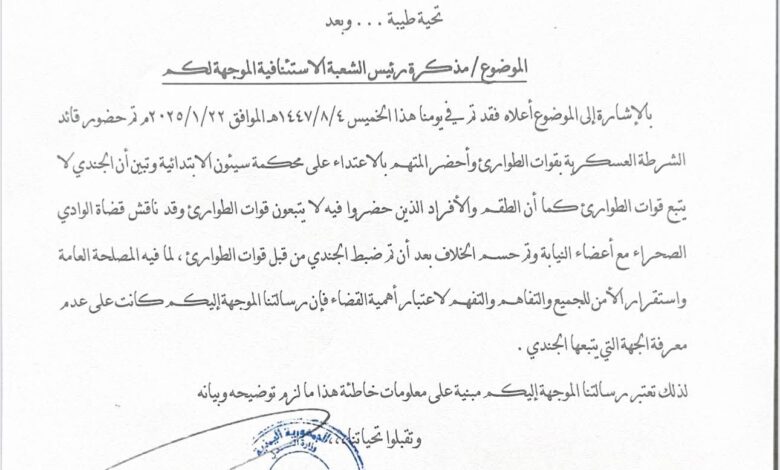 تحية طيبة ... وبعد
الموضوع/ مذكرة رئيس الشعبة الاستئنافية الموجهة لكم
بالإشارة إلى الموضوع أعلاه فقد تم في يومنا هذا الخميس ١٤٤٧/٨/٤هـ الموافق ٢٠٢٥/١/٢٢م تم حضور قائد
الشرطة العسكرية بقوات الطوارئ وأحضر المتهم بالاعتداء على محكمة سيئون الابتدائية وتبين أن الجندي لا
يتبع قوات الطوارئ كما أن الطقم والأفراد الذين حضروا فيه لا يتبعون قوات الطوارئ وقد ناقش قضاة الوادي
الصحراء مع أعضاء النيابة وتم حسم الخلاف بعد أن تم ضبط الجندي من قبل قوات الطوارئ، لما فيه المصلحة العامة
واستقرار الأمن للجميع والتفاهم والتفهم لاعتبار أهمية القضاء فإن رسالتنا الموجهة إليكم كانت على عدم
معرفة الجهة التي يتبعها الجندي.
لذلك تعتبر رسالتنا الموجهة إليكم مبنية على معلومات خاطئة هذا ما لزم توضيحه وبيانه
وتقبلوا تحياتنا،،،
الجمهورية اليمنية